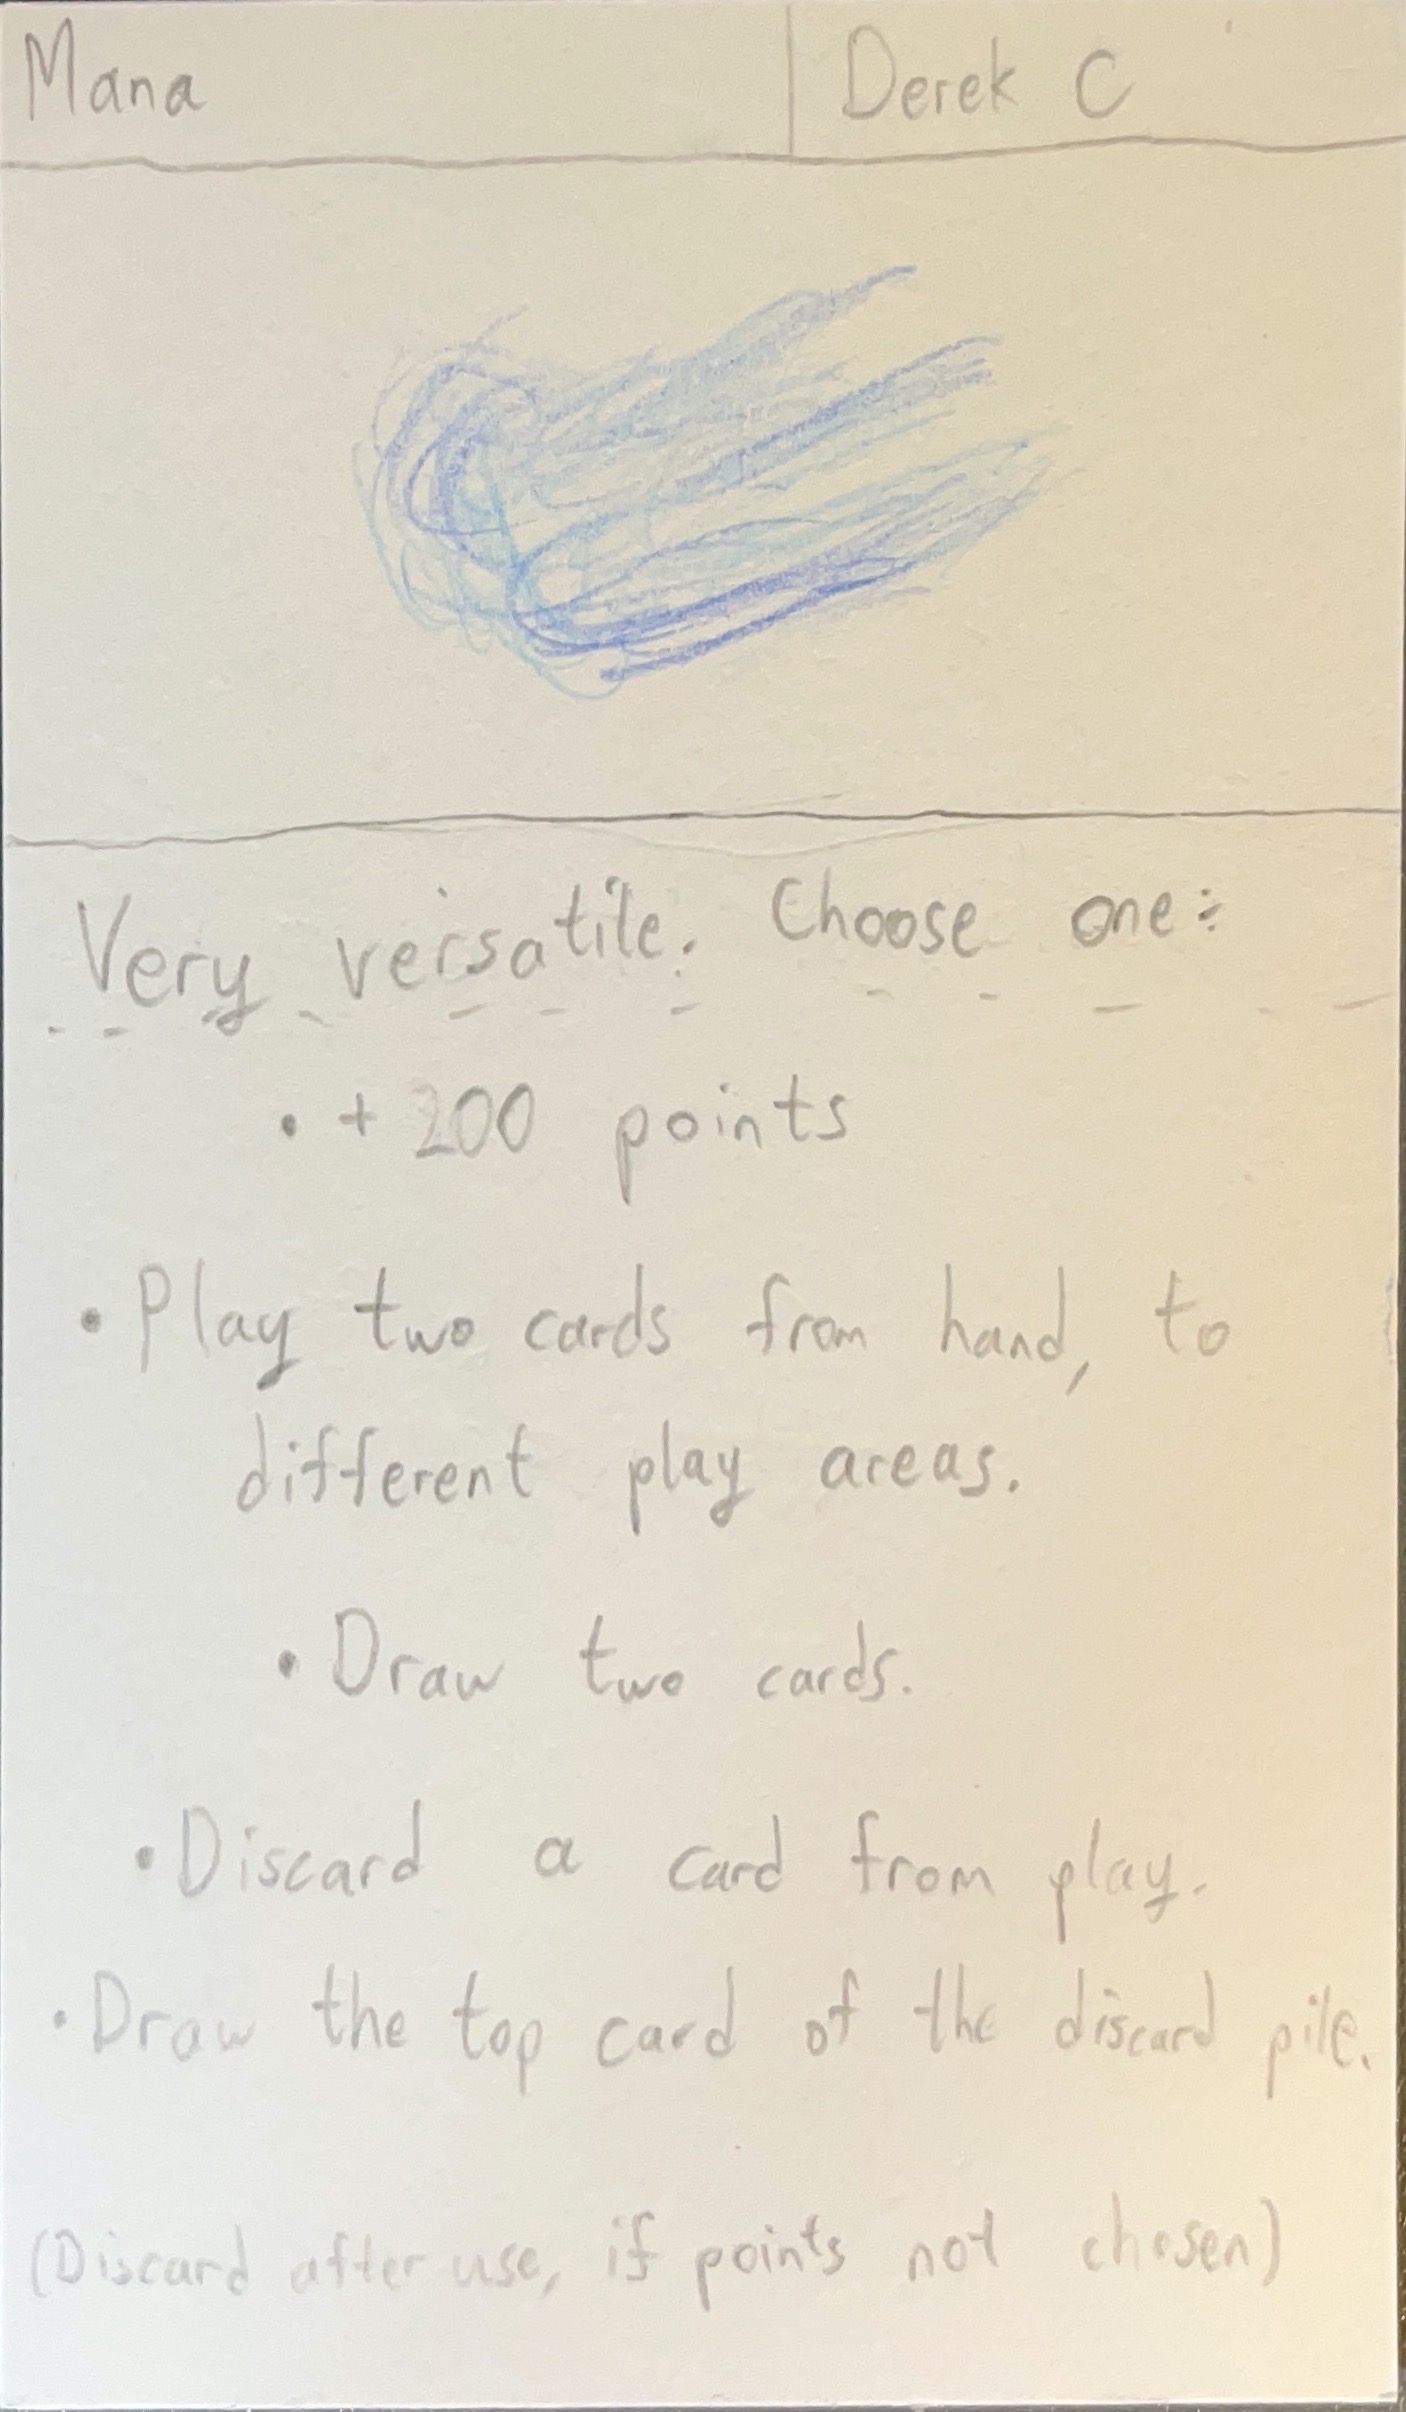 Mana
Derek C
Very versatile. Choose one:
• + 200 points
• Play two cards from hand, to
different play areas.
• Draw two cards.
• Discard a card from play.
• Draw the top card of the discard pile.
(Discard after use, if points not chosen)